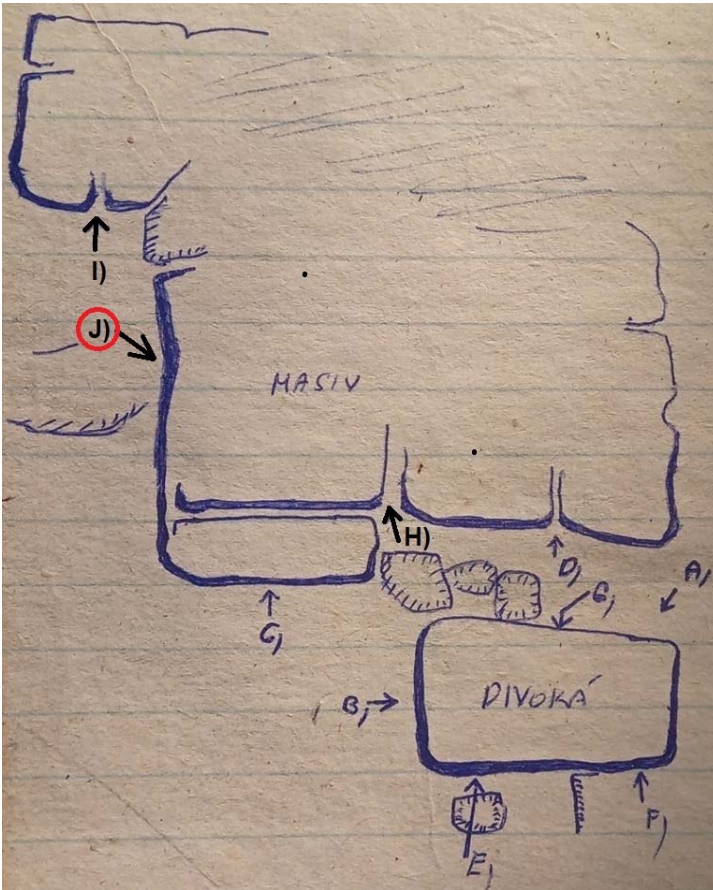 I)
J)
MASIV
H)
D)
A)
G)
C)
B)
DIVOKÁ
F)
E)